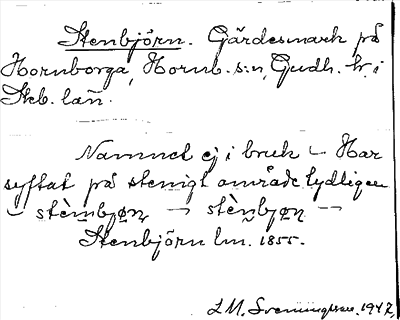 Stenbjörn. Gärdesmark på
Hornborga, Hornb. s:n, Gudh. hr. i
Skb. län.
Namnet ej i bruk – Har
syftat på stenigt område tydligen
– stè̀nbjøṇ – stènbjøṇ –
Stenbjörn lm. 1855.
L. M. Svenungsson. 1947.